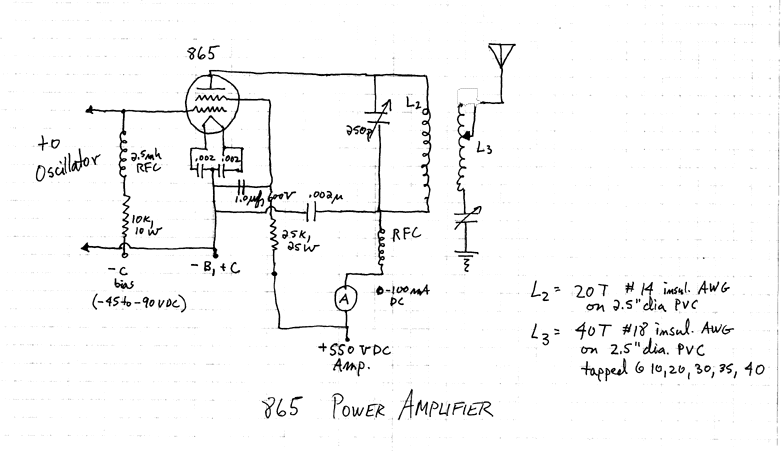 865
to
Oscillator
2.5mh
RFC
.002 .002
1.0µf, 600V
.002µ
250p
L2
L3
10K,
10W
25K,
25W
RFC
-C
bias
(-45 to -90 VDC)
-B, +C
A
0-100 MA
DC
+550 VDC
Amp.
L2 = 20T #14 insul. AWG
on 2.5" dia PVC
L3 = 40T #18 insul. AWG
on 2.5" dia. PVC
tapped @ 10, 20, 30, 35, 40
865 POWER AMPLIFIER